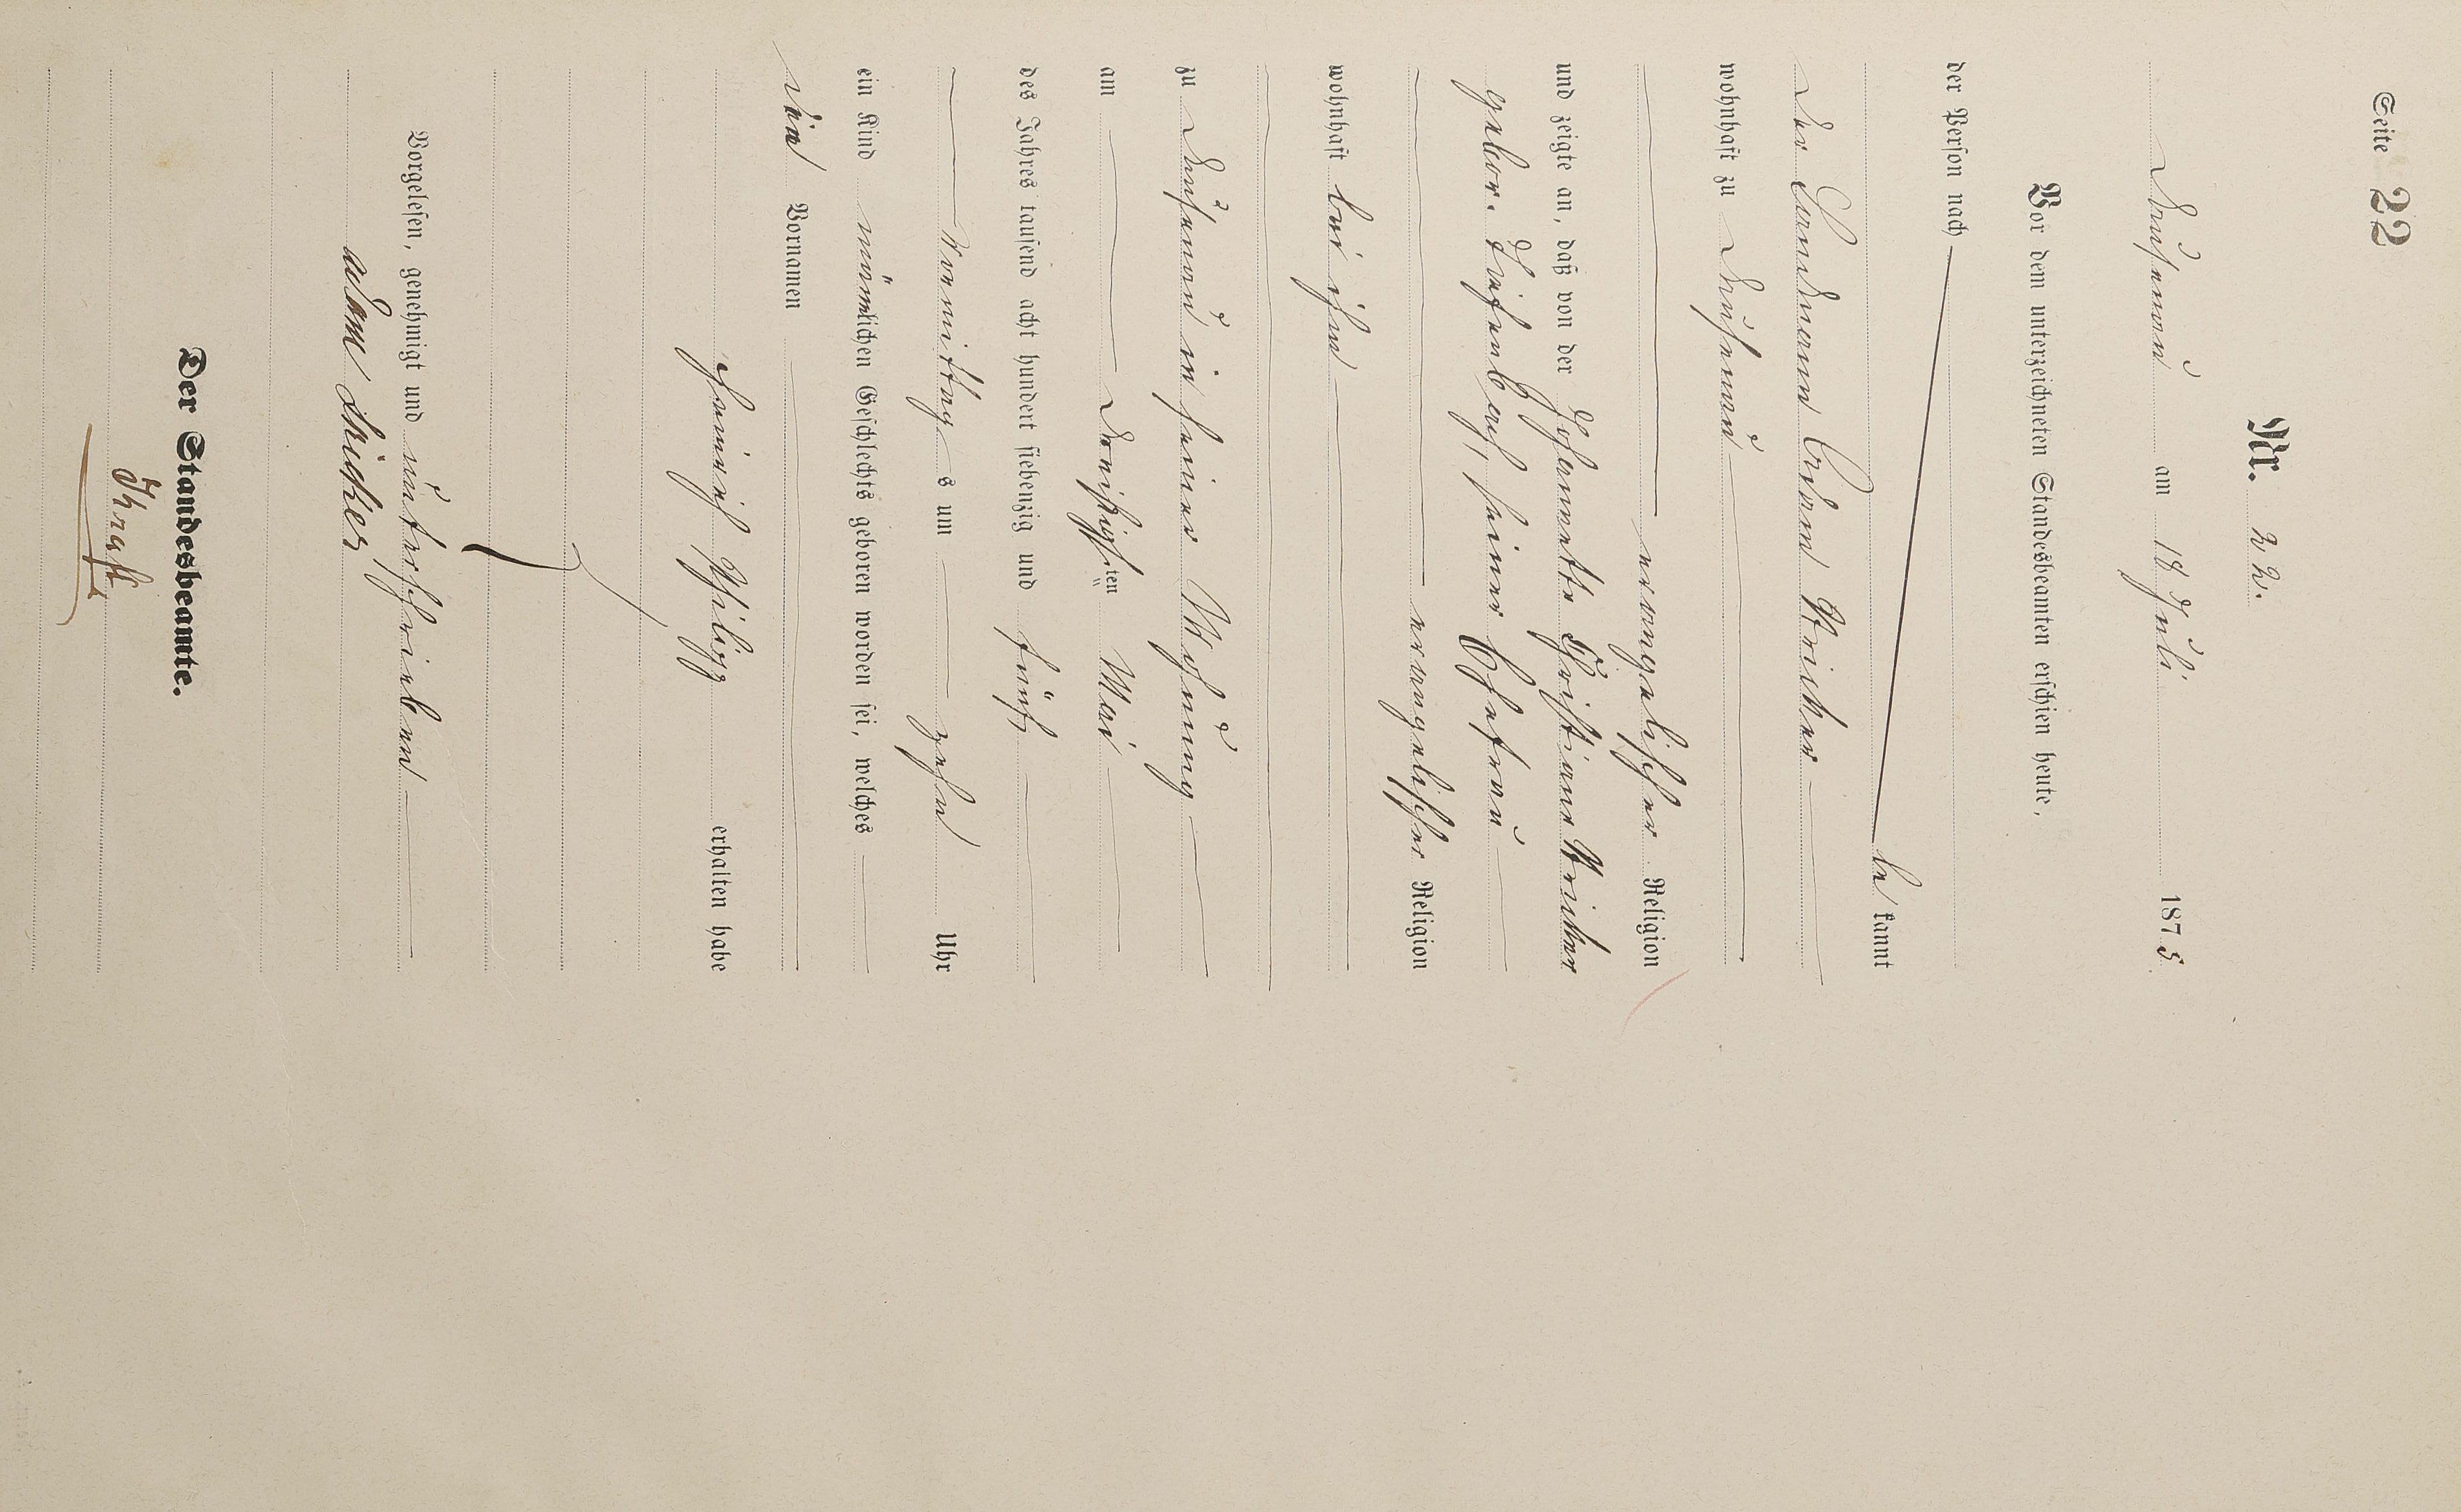 Seite 22
Nr. 22.
am 18 Juli 1875.
Vor dem unterzeichneten Standesbeamten erschien heute,
der Person nach
be kannt
der Landmann Adam Stricker
wohnhaft zu
evangelischer Religion
und zeigte an, daß von der Johannette Christiane Stricker
gebor. seiner Ehefrau
evangelischer Religion
wohnhaft bei ihm
zu in seiner Wohnung
am dreißigsten ten Mai
des Jahres tausend acht hundert siebenzig und fünf
Vormittag s um zehn Uhr
ein Kind männlichen Geschlechts geboren worden sei, welches
die Vornamen
Heinrich Philipp erhalten habe
Vorgelesen, genehmigt und unterschrieben
adam stricker
Der Standesbeamte.
Kraft